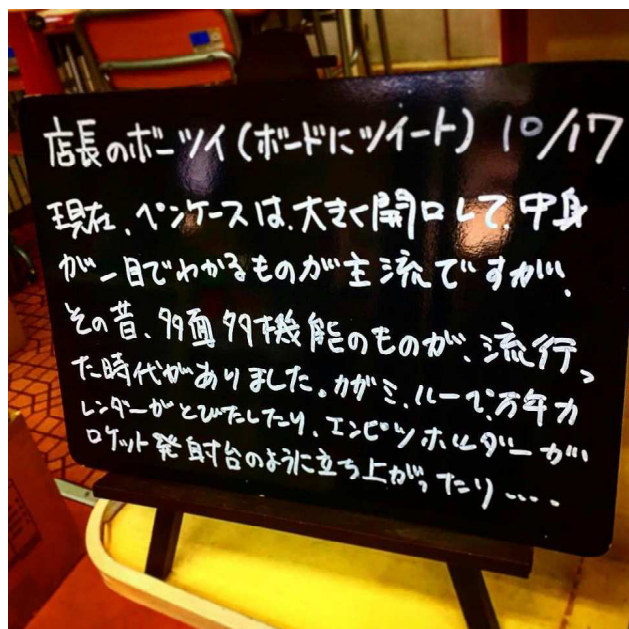 店長のボーツイ(ボードにツイート) 10/17
現在、ペンケースは、大きく開口して、中身
が一目でわかるものが主流ですが、
その昔、多面多機能のものが、流行っ
た時代がありました。カガミ、ルーペ、万年カ
レンダーがとびだしたり、エンピツホルダーが
ロケット発射台のように立ち上がったり…‥